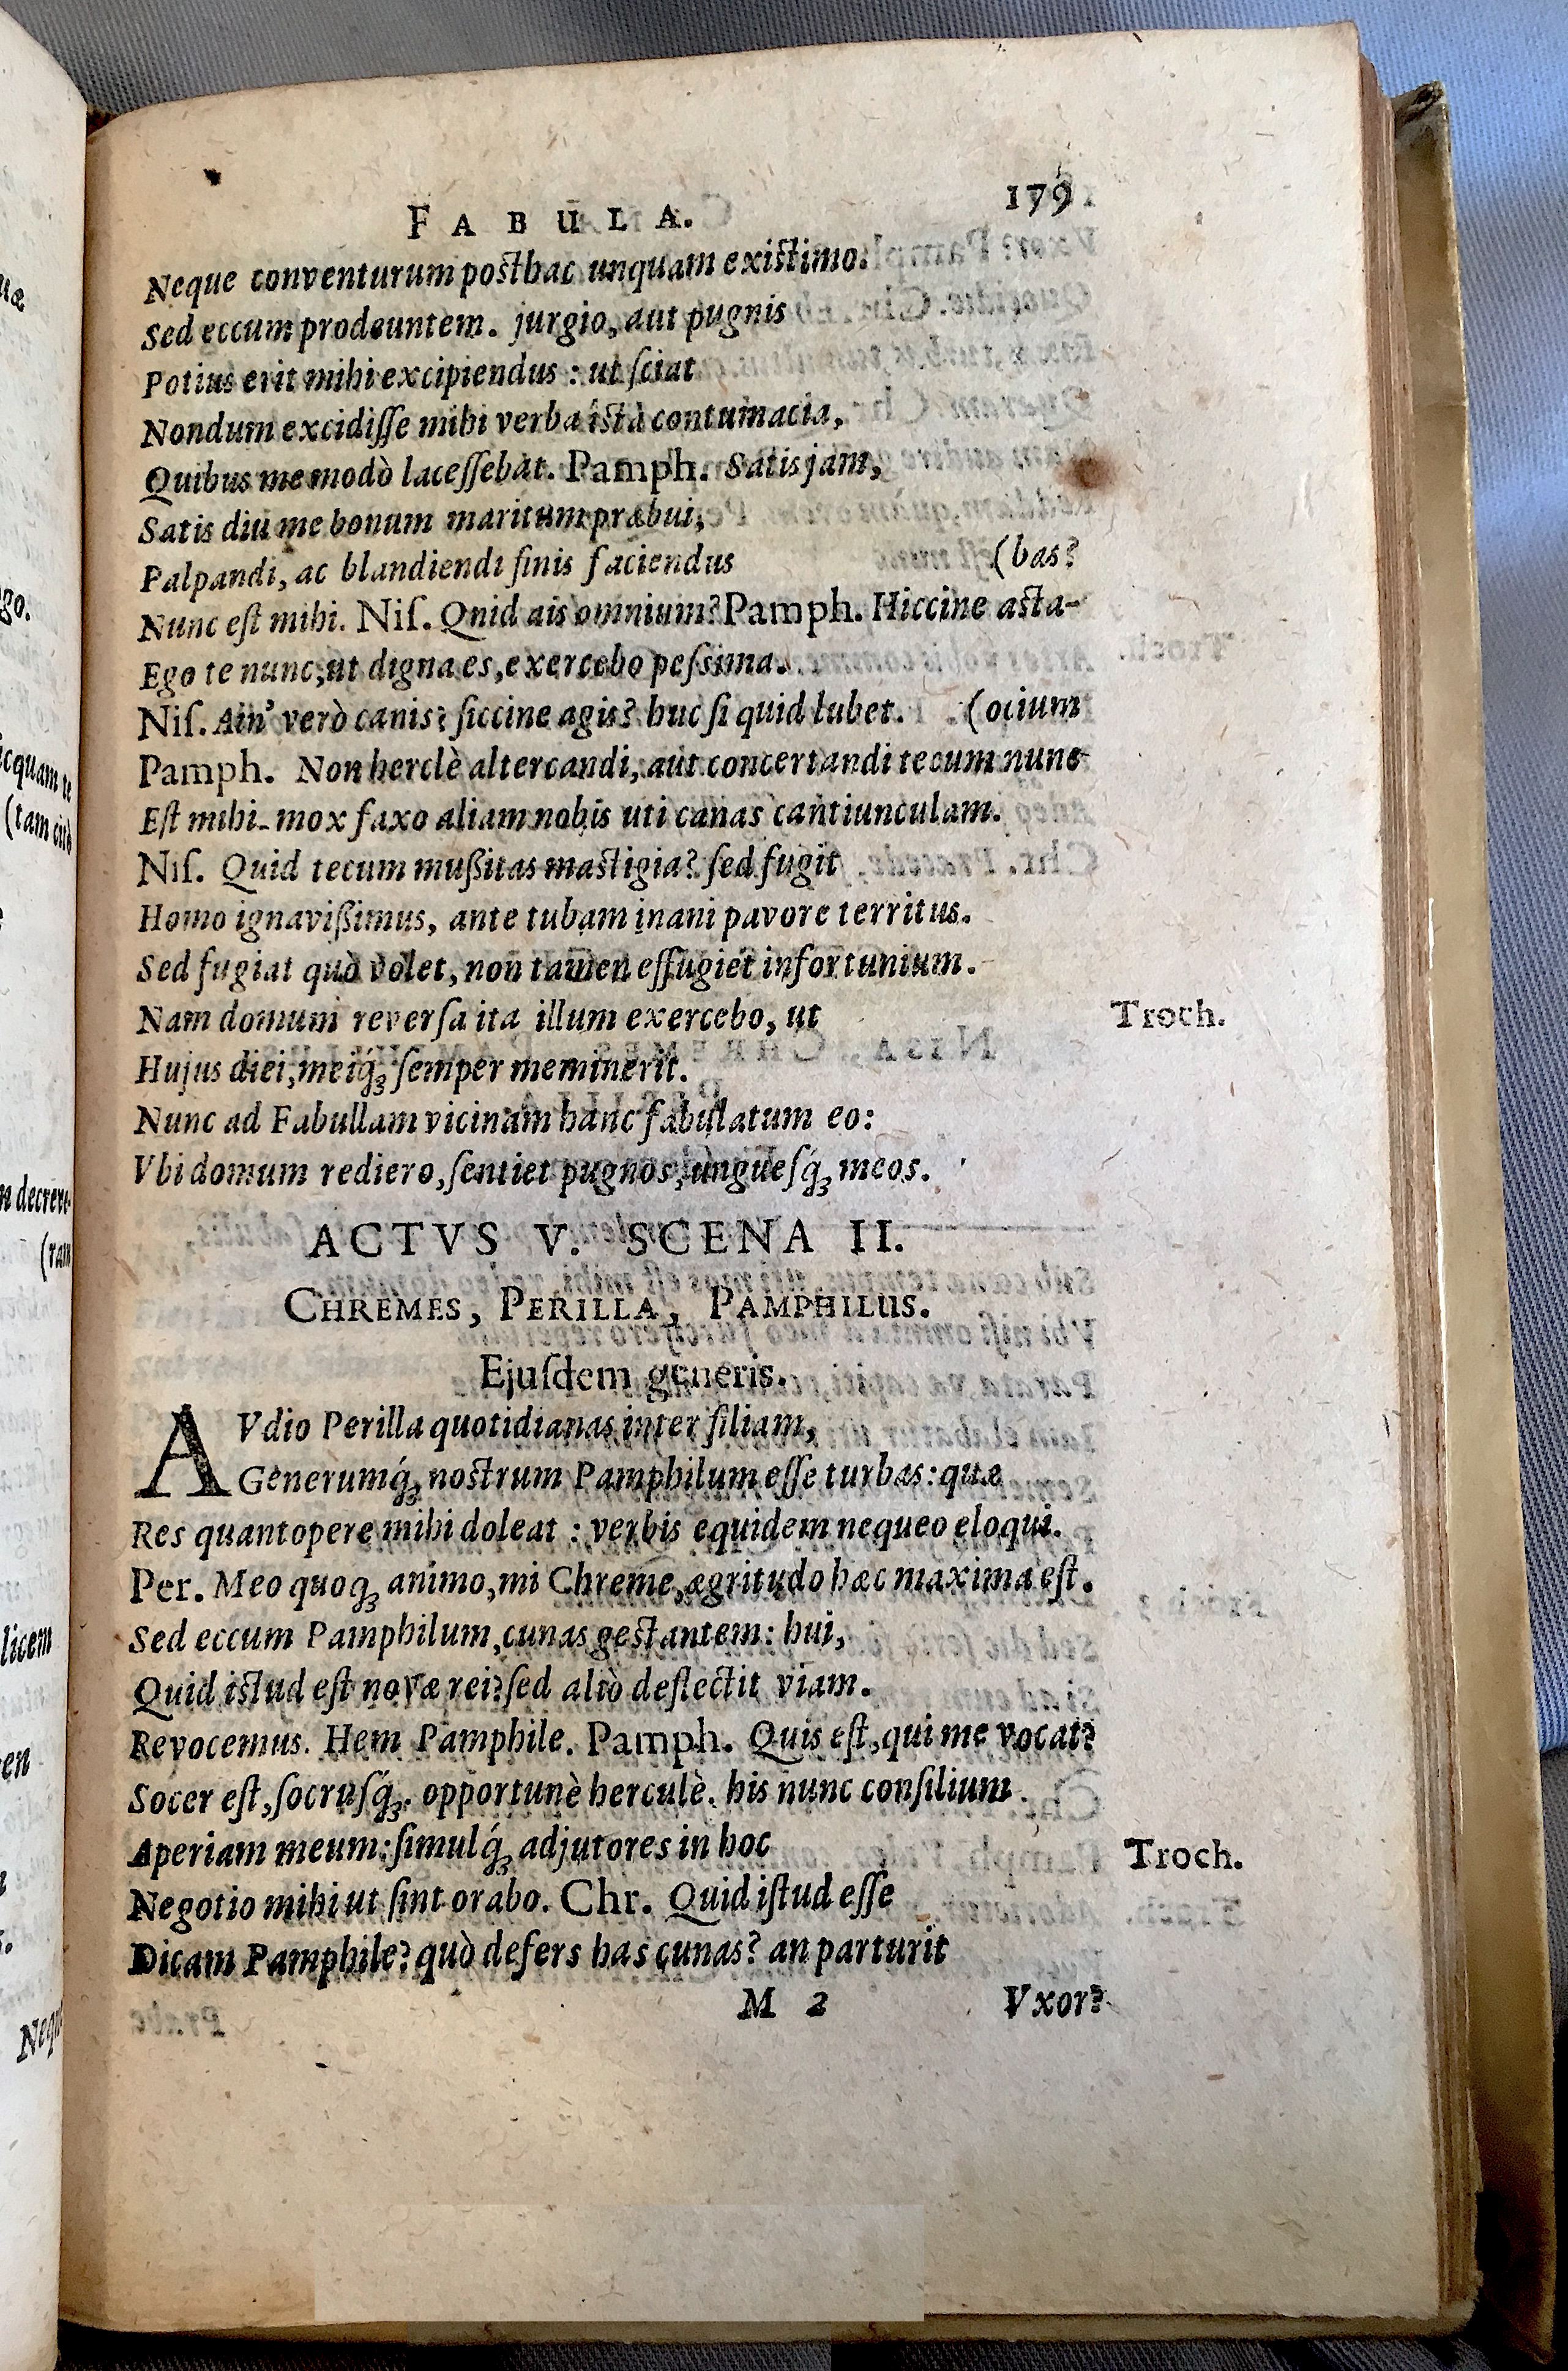 FABULA. 179
Neque conventurum posthac unquam existimo.
Sed eccum prodeuntem. jurgio, aut pugnis
Potius erit mihi excipiendus : ut ſciat
Nondum excidiſſe mihi verba ista contumacia,
Quibus me modò laceſſebat. Pamph. Satis jam,
Satis diu me bonum maritum præbui;
Palpandi, ac blandiendi finis faciendus (bas?
Nunc eſt mihi. Niſ. Qnid ais omnium? Pamph. Hiccine asta-
Ego te nunc, ut digna es, exercebo peſsima.
Niſ. Ain' verò canis? ſiccine agis? huc ſi quid lubet. (ocium
Pamph. Non herclè altercandi, aut concertandi tecum nunc
Eſt mihi. mox faxo aliam nobis uti canas cantiunculam.
Niſ. Quid tecum mußitas mastigia? ſed fugit
Homo ignavißimus, ante tubam inani pavore territus.
Sed fugiat quò volet, non tamen effugiet infortunium.
Nam domum reverſa ita illum exercebo, ut Troch.
Hujus diei, meiq́ꝫ ſemper meminerit.
Nunc ad Fabullam vicinam hanc fabulatum eo:
Vbi domum rediero, ſentiet pugnos, ungueſq́ꝫ meos.
ACTVS V. SCENA II.
CHREMES, PERILLA, PAMPHILUS.
Ejuſdem generis.
AVdio Perilla quotidianas inter filiam,
Generumq́ꝫ nostrum Pamphilum eſſe turbas: quæ
Res quantopere mihi doleat : verbis equidem nequeo eloqui.
Per. Meo quoqꝫ animo, mi Chreme, ægritudo hæc maxima eſt.
Sed eccum Pamphilum, cunas gestantem: hui,
Quid istud eſt novæ rei? ſed aliò deflectit viam.
Revocemus. Hem Pamphile. Pamph. Quis eſt, qui me vocat?
Socer eſt, ſocruſq́ꝫ. opportunè herculè. his nunc conſilium
Aperiam meum: ſimulq́ꝫ adjutores in hoc Troch.
Negotio mihi ut ſint orabo. Chr. Quid iſtud eſſe
Dicam Pamphile? quò defers has cunas? an parturit
M 2 Vxor?